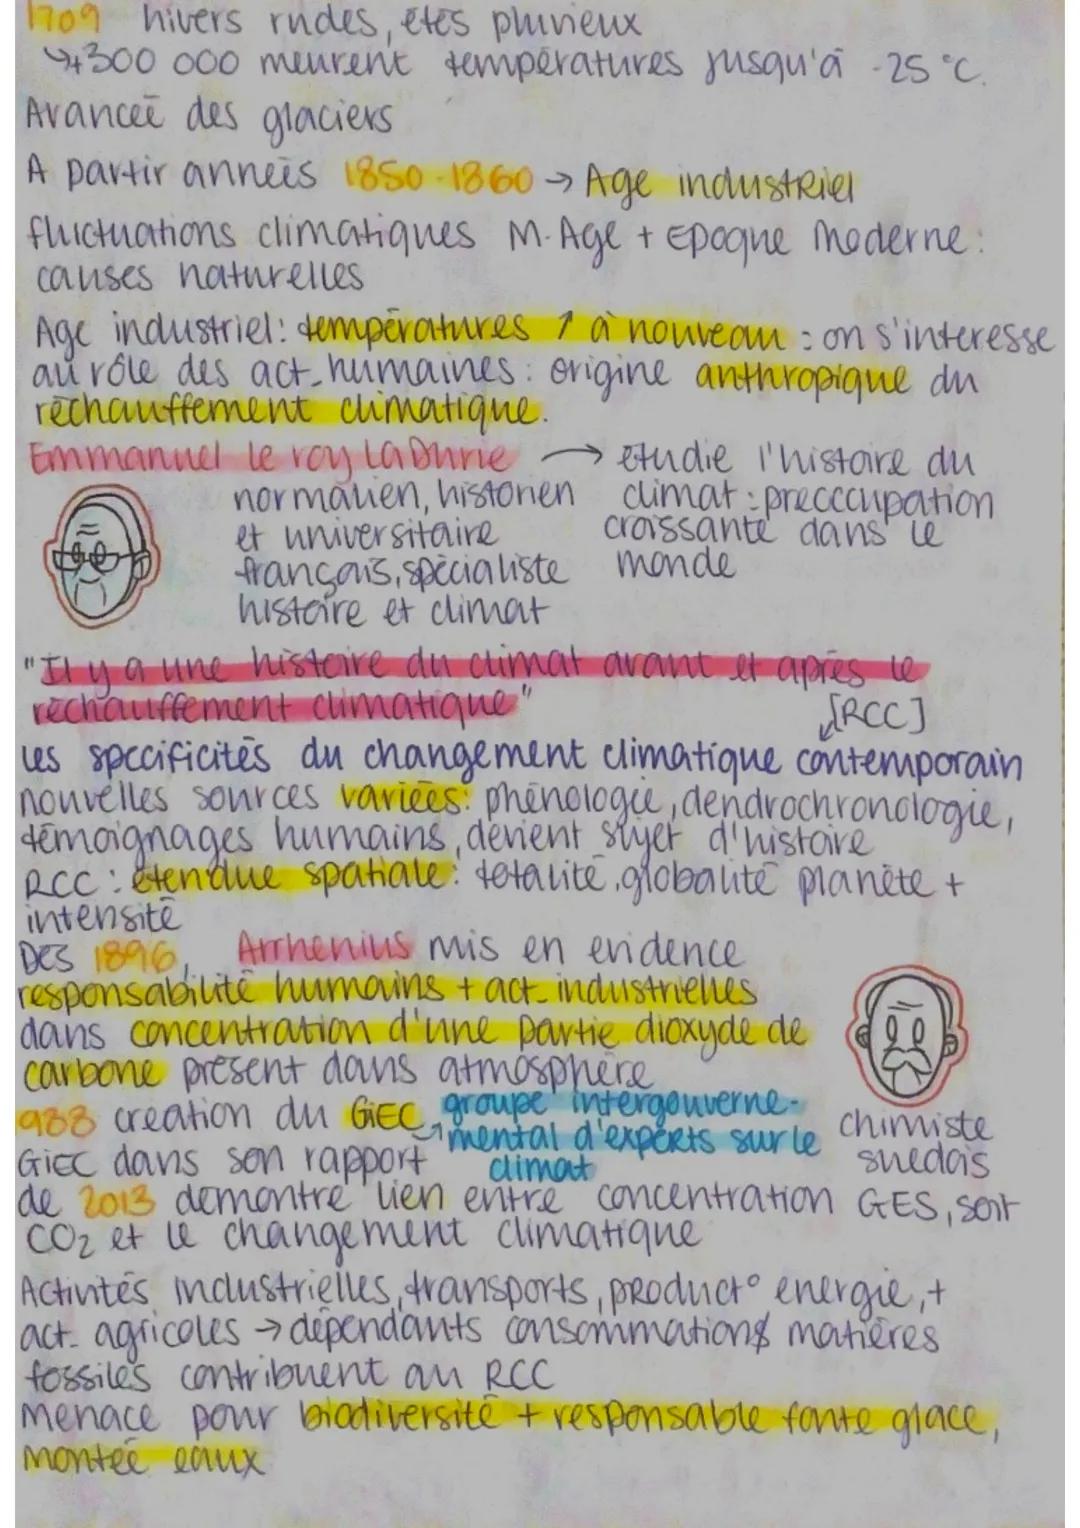 1709 hivers rudes, étés pluvieux
↳+300 000 meurent températures jusqu'à -25 °C.
Avancée des glaciers
A partir années 1850-1860 → Age industriel
fluctuations climatiques M.Age + Epoque Moderne :
causes naturelles
Age industriel : températures ↑ à nouveau : on s'interesse
au rôle des act. humaines : origine anthropique du
réchauffement climatique.
Emmanuel le roy LaDurie → étudie l'histoire du
normalien, historien climat : preocccupation
et universitaire croissante dans le
français, spécialiste monde
histoire et climat
"Il y a une histoire du climat avant et après le
réchauffement climatique"
[RCC]
Les spécificités du changement climatique contemporain
nouvelles sources variées : phénologie, dendrochronologie,
témoignages humains, devient sujet d'histoire
RCC : étendue spatiale : totalité, globalité planète +
intensité
DES 1896, Arrhenius mis en evidence
responsabilité humains + act. industrielles
dans concentration d'une partie dioxyde de
carbone présent dans atmosphère
988 création du GIEC groupe intergouverne-
mental d'experts sur le
climat
chimiste
suédois
GIEC dans son rapport
de 2013 démontre lien entre concentration GES, soit
CO2 et le changement climatique
Activités industrielles, transports, product° énergie, +
act. agricoles → dépendants consommations matières
fossiles contribuent au RCC
Menace pour biodiversité + responsable fonte glace,
montée eaux